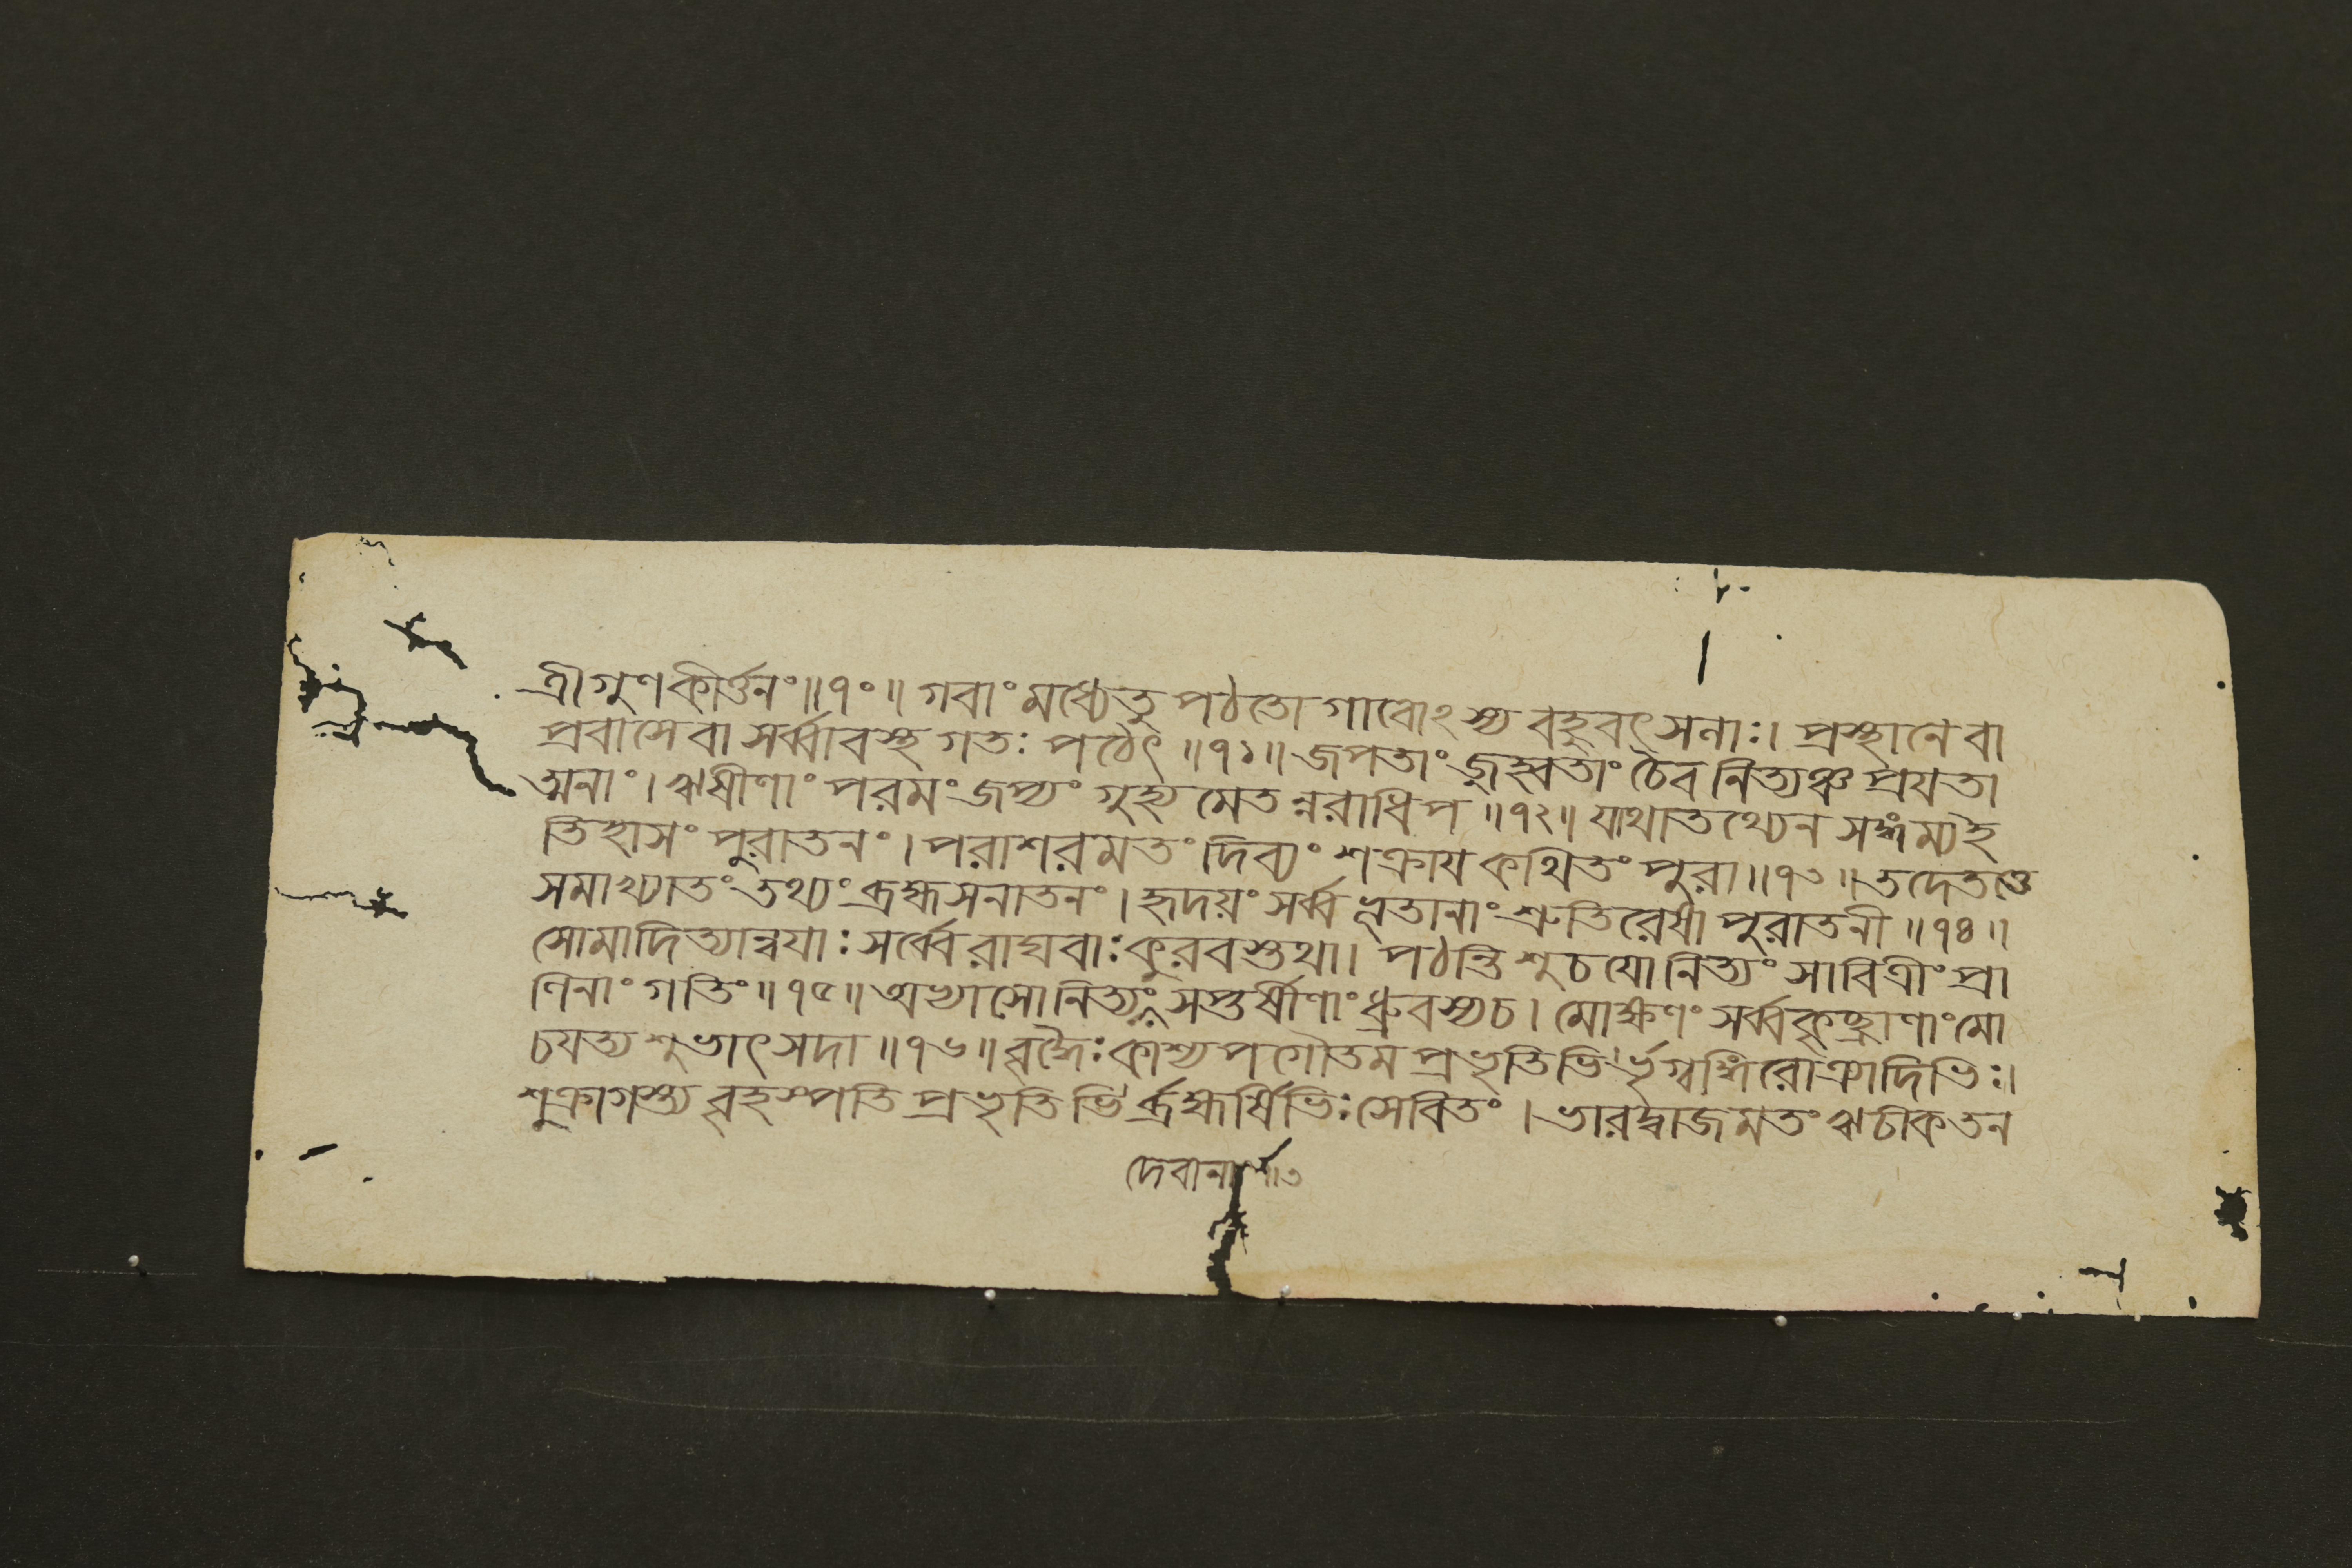 ত্রীগুণকীর্ত্তনং॥১০॥ গবাং মধ্যেতু পঠতো গাবোঽস্য বহুবৎসনাঃ। প্রস্থানে বা
প্রবাসে বা সর্ব্বাবস্থ গতঃ পঠেৎ ॥১১॥ জপতাং জুহ্বতাং চৈব নিত্যঞ্চ প্রযতা
ত্মনাং। ঋষীণাং পরমং জপ্যং গুহ্যমেতন্নরাধিপ ॥১২॥ যাথাতথ্যেন সঙ্গম্যই
তিহাসং পুরাতনং। পরাশরমতং দিব্যং শক্রায কথিতং পুরা॥১৩॥ তদেতত্তে
সমাখ্যাতং তথ্যং ব্রহ্মসনাতনং। হৃদয়ং সর্ব্বভূতানাং শ্রুতিরেষা পুরাতনী ॥১৪॥
সোমাদিত্যান্বযাঃ সর্ব্বে রাঘবাঃ কুরবস্তথা। পঠন্তি শুচযোনিত্যং সাবিত্রীং প্রা
ণিনাং গতিং॥১৫॥ অভ্যাসোনিত্যং সপ্তর্ষীণাং ধ্রুবস্যচ। মোক্ষণং সর্ব্বকৃচ্ছ্রাণাং মো
চযত্য শুভাৎ সদা ॥১৬॥ বৃদ্ধৈঃ কাশ্যপগৌতম প্রভৃতিভির্ভৃগ্বঙ্গিরোঽত্র্যাদিভিঃ।
শুক্রাগস্ত্য বৃহস্পতি প্রভৃতিভির্ব্রহ্মর্ষিভিঃ সেবিতং। ভারদ্বাজমতং ঋচীকতন
দেবানা